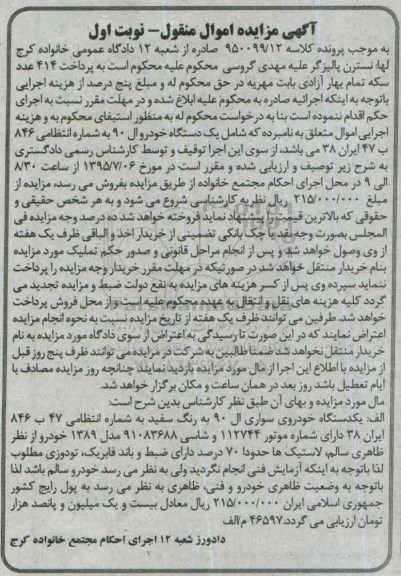 آگهی مزایده اموال منقول- نوبت اول
به موجب پرونده کلاسه ۹۵۰۰۹۹/۱۲ صادره از شعبه ۱۲ دادگاه عمومی خانواده کرج
لها: نسترن پالیزگر علیه مهدی گروسی محکوم علیه محکوم است به پرداخت ۴۱۴ عدد
سکه تمام بهار آزادی بابت مهریه در حق محکوم له و مبلغ پنج درصد از هزینه اجرایی
باتوجه به اینکه اجرائیه صادره به محکوم علیه ابلاغ شده و در مهلت مقرر نسبت به اجرای
حکم اقدام ننموده است بنا به درخواست محکوم له به منظور استیفای محکوم به و هزینه
اجرایی اموال متعلق به نامبرده که شامل یک دستگاه خودرو ال ۹۰ به شماره انتظامی ۸۴۶
ب ۴۷ ایران ۳۸ می باشد، از سوی این اجرا توقیف و توسط کارشناس رسمی دادگستری
به شرح زیر توصیف و ارزیابی شده و مقرر است در مورخ ۱۳۹۵/۷/۰۶ از ساعت ۸/۳۰
الی ۹ در محل اجرای احکام مجتمع خانواده از طریق مزایده بفروش می رسد، مزایده از
مبلغ ۲۱۵/۰۰۰/۰۰۰ ریال نظریه کارشناسی شروع می شود و به هر شخص حقیقی و
حقوقی که بالاترین قیمت را پیشنهاد نماید فروخته خواهد شد ده درصد وجه مزایده فی
المجلس بصورت وجه نقد یا چک بانکی تضمینی از خریدار اخذ و الباقی ظرف یک هفته
از وی وصول خواهد شد و پس از انجام مراحل قانونی و صدور حکم تملیک مورد مزایده
بنام خریدار منتقل خواهد شد در صورتیکه در مهلت مقرر خریدار وجه مزایده را پرداخت
ننماید سپرده وی پس از کسر هزینه های مزایده به نفع دولت ضبط و مزایده تجدید می
گردد کلیه هزینه های نقل و انتقال به عهده محکوم علیه است و از محل فروش پرداخت
خواهد شد. طرفین می توانند ظرف یک هفته از تاریخ مزایده نسبت به نحوه انجام مزایده
اعتراض نمایند که در این صورت تا رسیدگی به اعتراض از سوی دادگاه مورد مزایده به نام
خریدار منتقل نخواهد شد ضمنا طالبین به شرکت در مزایده می توانند ظرف پنج روز قبل
از مزایده با اطلاع این اجرا از مال مورد مزایده بازدید نمایند چنانچه روز مزایده مصادف با
ایام تعطیل باشد روز بعد در همان ساعت و مکان برگزار خواهد شد.
مال مورد مزایده و بهای آن طبق نظر کارشناس بدین شرح است:
الف: یکدستگاه خودروی سواری ال ۹۰ به رنگ سفید به شماره انتظامی ۴۷ ب ۸۴۶
ایران ۳۸ دارای شماره موتور ۱۱۲۷۴۴ و شاسی ۹۱۰۸۳۶۸۸ مدل ۱۳۸۹ خودرو از نظر
ظاهری سالم، لاستیک ها حدودا ۷۰ درصد دارای ضبط و باند فابریک، تودوزی مطلوب
لذا باتوجه به اینکه آزمایش فنی انجام نگردید ولی به نظر می رسد خودرو سالم باشد لذا
باتوجه به وضعیت ظاهری خودرو و فنی، ظاهری به نظر می رسد به پول رایج کشور
جمهوری اسلامی ایران ۲۱۵/۰۰۰/۰۰۰ ریال معادل بیست و یک میلیون و پانصد هزار
تومان ارزیابی می گردد.۴۶۵۹۷ م/الف
دادورز شعبه ۱۲ اجرای احکام مجتمع خانواده کرج